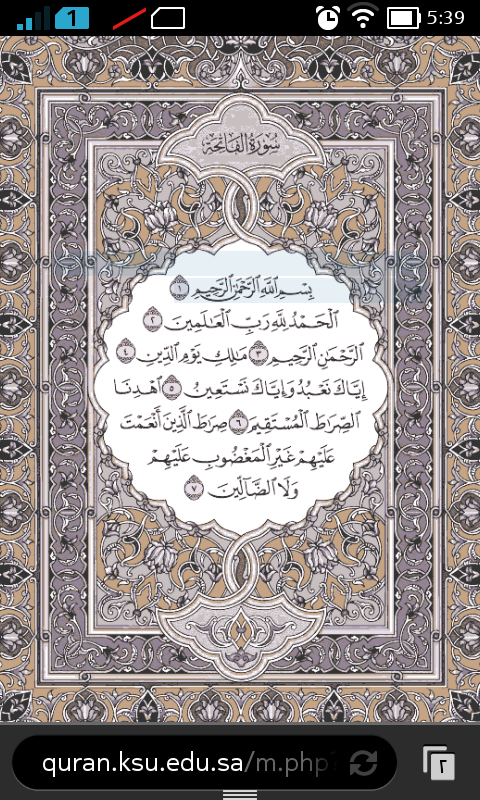 1
5:39
سُورَةُ الفَاتِحَةِ
بِسْمِ ٱللَّهِ ٱلرَّحْمَٰنِ ٱلرَّحِيمِ ١
ٱلْحَمْدُ لِلَّهِ رَبِّ ٱلْعَٰلَمِينَ ٢
ٱلرَّحْمَٰنِ ٱلرَّحِيمِ ٣ مَٰلِكِ يَوْمِ ٱلدِّينِ ٤
إِيَّاكَ نَعْبُدُ وَإِيَّاكَ نَسْتَعِينُ ٥ ٱهْدِنَا
ٱلصِّرَٰطَ ٱلْمُسْتَقِيمَ ٦ صِرَٰطَ ٱلَّذِينَ أَنْعَمْتَ
عَلَيْهِمْ غَيْرِ ٱلْمَغْضُوبِ عَلَيْهِمْ
وَلَا ٱلضَّآلِّينَ ٧
quran.ksu.edu.sa/m.php?
٢